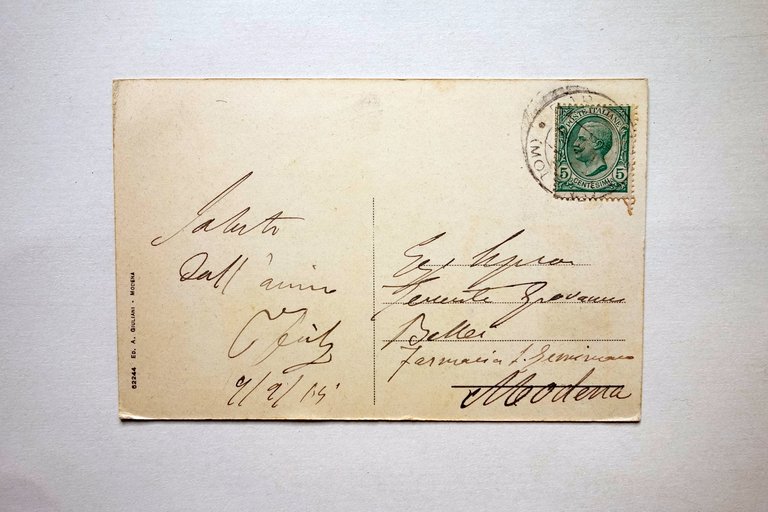 Saluto
dall'amico
9/9/15
POSTE ITALIANE
5 5
CENTESIMI
(MO
Eg. Signor
Tenente Giovanni
Bellei
Farmacia S. Geminiano
Modena
62244 ED. A. GIULIANI - MODENA